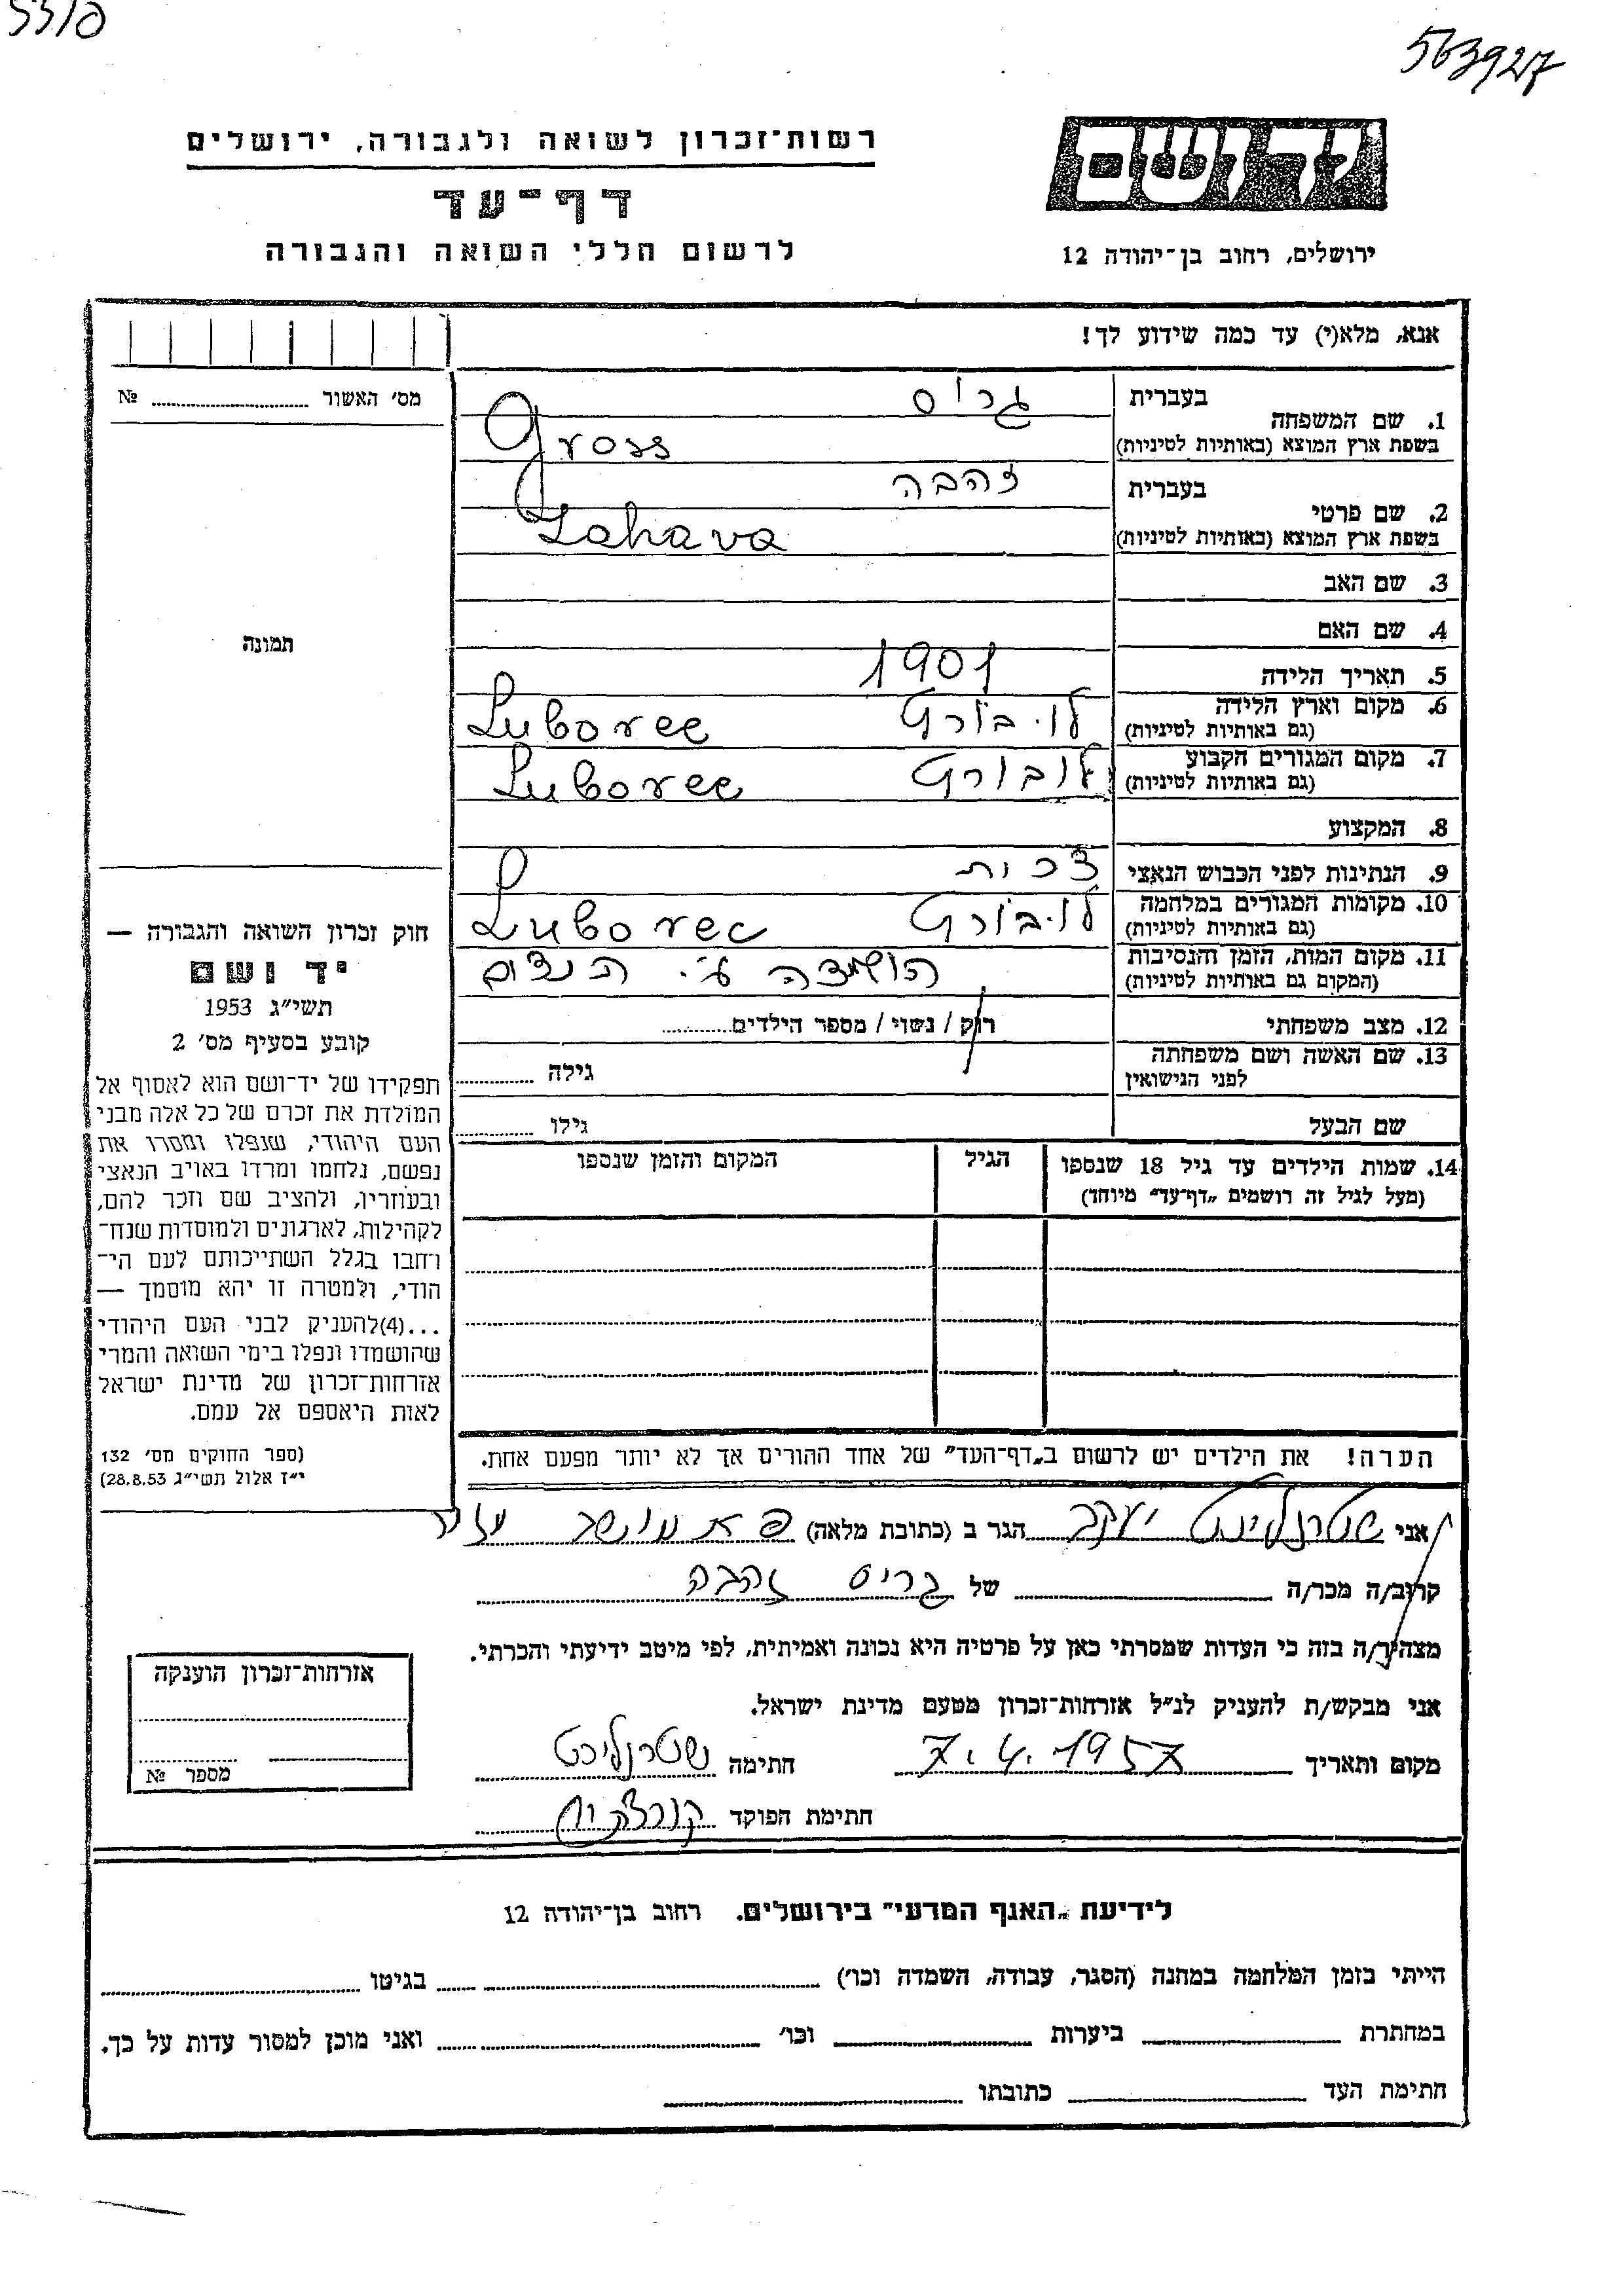 5510
563927
רשות־זכרון לשואה ולגבורה, ירושלים
דף־עד
לרשום חללי השואה והגבורה
ידושם
ירושלים, רחוב בן־יהודה 12
אנא, מלא(י) עד כמה שידוע לך!
מס׳ האשור № 
תמונה
חוק זכרון השואה והגבורה —
יד ושם
תשי״ג 1953
קובע בסעיף מס׳ 2
תפקידו של יד־ושם הוא לאסוף אל
המולדת את זכרם של כל אלה מבני
העם היהודי, שנפלו ומסרו את
נפשם, נלחמו ומרדו באויב הנאצי
ובעוזריו, ולהציב שם וזכר להם,
לקהילות, לארגונים ולמוסדות שנח־
רחבו בגלל השתייכותם לעם הי־
הודי, ולמטרה זו יהא מוסמך —
...(4)להעניק לבני העם היהודי
שהושמדו ונפלו בימי השואה והמרי
אזרחות־זכרון של מדינת ישראל
לאות היאספם אל עמם.
(ספר החוקים מס׳ 132
י״ז אלול תשי״ג 28.8.53)
בעברית גרוס
1. שם המשפחה
בשפת ארץ המוצא (באותיות לטיניות) Gross
בעברית זהבה
2. שם פרטי
בשפת ארץ המוצא (באותיות לטיניות) Zahava
3. שם האב
4. שם האם
5. תאריך הלידה 1901
6. מקום וארץ הלידה לובורץ Luborec
(גם באותיות לטיניות)
7. מקום המגורים הקבוע לובורץ Luborec
(גם באותיות לטיניות)
8. המקצוע
9. הנתינות לפני הכבוש הנאצי צכית
10. מקומות המגורים במלחמה לובורץ Luborec
(גם באותיות לטיניות)
11. מקום המות, הזמן והנסיבות הושמדה ע״י הנצים
(המקום גם באותיות לטיניות)
12. מצב משפחתי רוק / נשוי / מספר הילדים
13. שם האשה ושם משפחתה
לפני הנישואין גילה
שם הבעל גילו
14. שמות הילדים עד גיל 18 שנספו הגיל המקום והזמן שנספו
(מעל לגיל זה רושמים „דף־עד״ מיוחד)
הערה! את הילדים יש לרשום ב„דף־העד״ של אחד ההורים אך לא יותר מפעם אחת.
אני שטרנליכט יעקב הגר ב (כתובת מלאה) מושב
קרוב/ה מכר/ה של גרוס זהבה
מצהיר/ה בזה כי העדות שמסרתי כאן על פרטיה היא נכונה ואמיתית, לפי מיטב ידיעתי והכרתי.
אני מבקש/ת להעניק לנ״ל אזרחות־זכרון מטעם מדינת ישראל.
מקום ותאריך 7.4.1957 חתימה שטרנליכט
חתימת הפוקד
אזרחות־זכרון הוענקה
מספר №
לידיעת „האגף המדעי״ בירושלים. רחוב בן־יהודה 12
הייתי בזמן המלחמה במחנה (הסגר, עבודה, השמדה וכו׳) בגיטו
במחתרת ביערות וכו׳ ואני מוכן למסור עדות על כך.
חתימת העד כתובתו